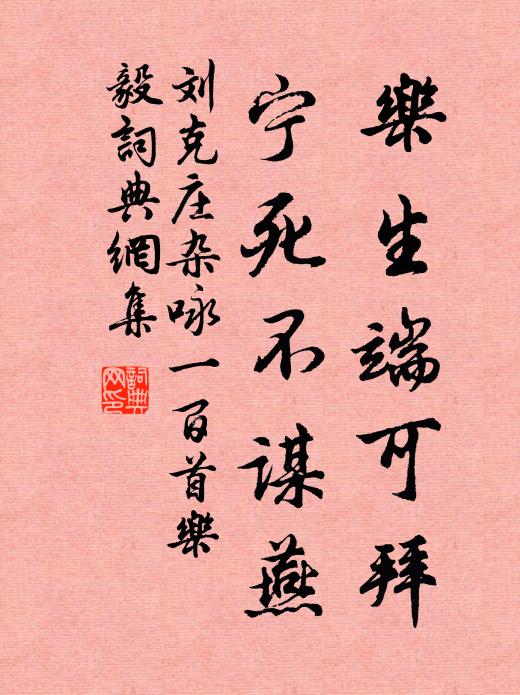 樂生端可拜
宁死不谋燕
刘克庄杂咏一百首樂
毅詞典網集
詞典網印